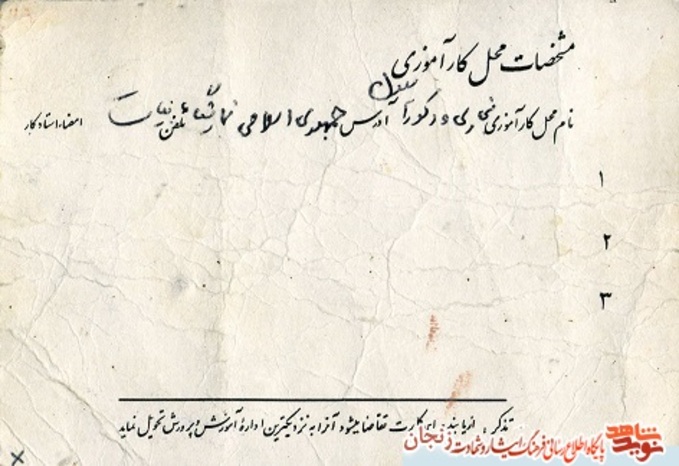 مشخصات محل کارآموزی
نام محل کارآموزی آدرس جمهوری اسلامی تلفن امضاء استاد کار
۱
۲
۳
تذکر: از یابنده این کارت تقاضا میشود آنرا به نزدیکترین ادارهٔ آموزش و پرورش تحویل نماید
نوید شاهد پایگاه اطلاع رسانی فرهنگ ایثار و شهادت زنجان